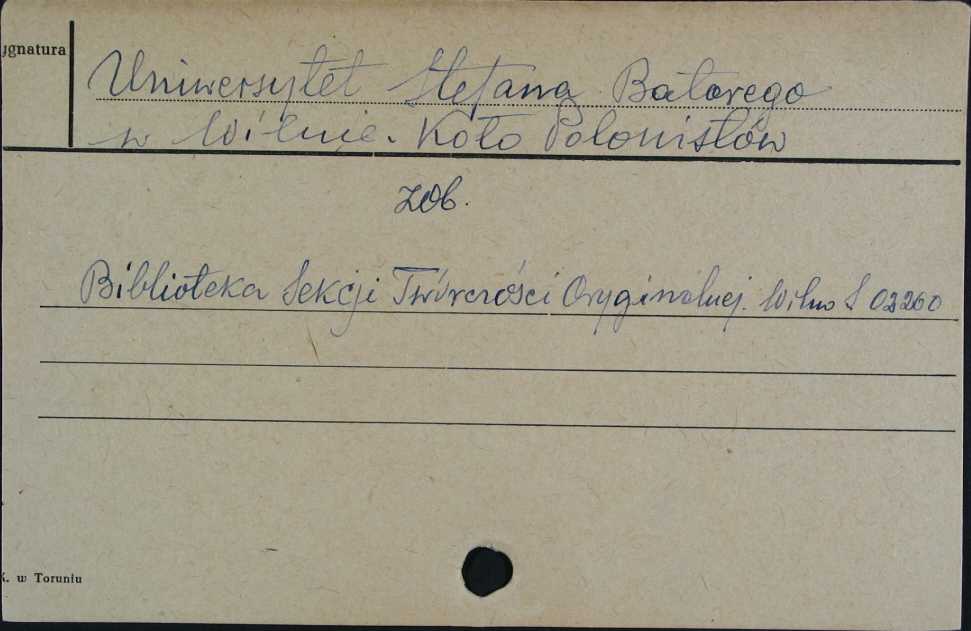 ygnatura
Uniwersytet Stefana Batorego
w Wilnie. Koło Polonistów
zob.
Biblioteka Sekcji Twórczości Oryginalnej. Wilno S 03260
K. w Toruniu